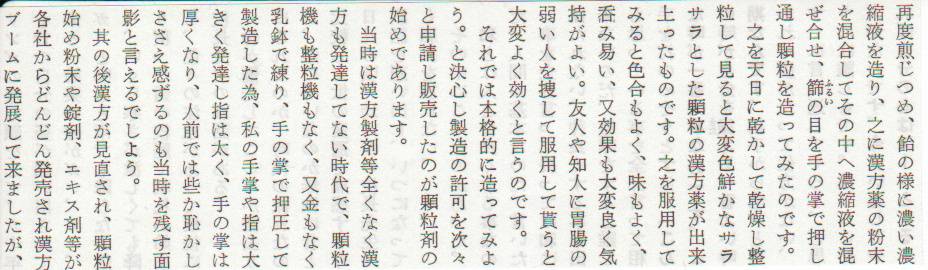 再度煎じつめ、飴の様に濃い濃
縮液を造り、之に漢方薬の粉末
を混合してその中へ濃縮液を混
ぜ合せ、篩の目を手の掌で押し
通し顆粒を造ってみたのです。
之を天日に乾かして乾燥し整
粒して見ると大変色鮮かなサラ
サラとした顆粒の漢方薬が出来
上ったものです。之を服用して
みると色合もよく、味もよく、
呑み易い、又効果も大変良く気
持がよい。友人や知人に胃腸の
弱い人を捜して服用して貰うと
大変よく効くと言うのです。
それでは本格的に造ってみよ
う。と決心し製造の許可を次々
と申請し販売したのが顆粒剤の
始めであります。
当時は漢方製剤等全くなく漢
方も発達してない時代で、顆粒
機も整粒機もなく、又金もなく
乳鉢で練り、手の掌で押圧して
製造した為、私の手掌や指は大
きく発達し指は太く、手の掌は
厚くなり、人前では些か恥かし
ささえ感ずるのも当時を残す面
影と言えるでしよう。
其の後漢方が見直され、顆粒
始め粉末や錠剤、エキス剤等が
各社からどんどん発売され漢方
ブームに発展して来ましたが、